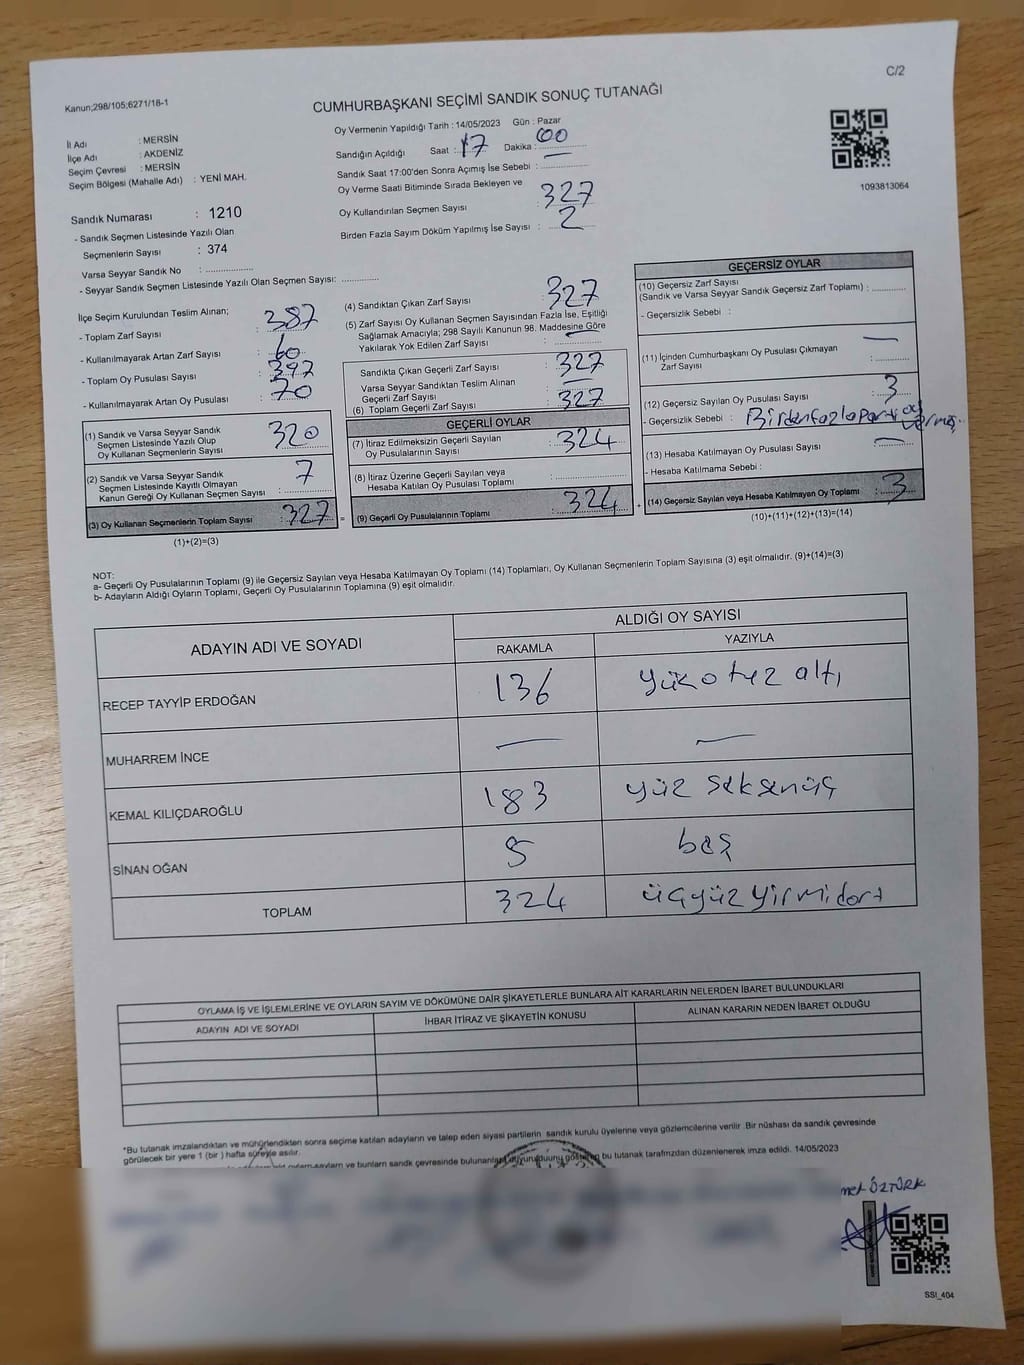 C/2
Kanun;298/105;6271/18-1
CUMHURBAŞKANI SEÇİMİ SANDIK SONUÇ TUTANAĞI
İl Adı : MERSİN
İlçe Adı : AKDENİZ
Seçim Çevresi : MERSİN
Seçim Bölgesi (Mahalle Adı) : YENİ MAH.
Sandık Numarası : 1210
- Sandık Seçmen Listesinde Yazılı Olan
Seçmenlerin Sayısı : 374
Varsa Seyyar Sandık No :
- Seyyar Sandık Seçmen Listesinde Yazılı Olan Seçmen Sayısı:
Oy Vermenin Yapıldığı Tarih : 14/05/2023 Gün : Pazar
Sandığın Açıldığı Saat : 17 Dakika : 00
Sandık Saat 17:00'den Sonra Açımış İse Sebebi : —
Oy Verme Saati Bitiminde Sırada Bekleyen ve
Oy Kullandırılan Seçmen Sayısı : 327
Birden Fazla Sayım Döküm Yapılmış İse Sayısı : 2
1093813064
İlçe Seçim Kurulundan Teslim Alınan;
- Toplam Zarf Sayısı : 387
- Kullanılmayarak Artan Zarf Sayısı : 60
- Toplam Oy Pusulası Sayısı : 397
- Kullanılmayarak Artan Oy Pusulası : 70
(1) Sandık ve Varsa Seyyar Sandık
Seçmen Listesinde Yazılı Olup
Oy Kullanan Seçmenlerin Sayısı : 320
(2) Sandık ve Varsa Seyyar Sandık
Seçmen Listesinde Kayıtlı Olmayan
Kanun Gereği Oy Kullanan Seçmen Sayısı : 7
(3) Oy Kullanan Seçmenlerin Toplam Sayısı : 327
(1)+(2)=(3)
(4) Sandıktan Çıkan Zarf Sayısı : 327
(5) Zarf Sayısı Oy Kullanan Seçmen Sayısından Fazla İse, Eşitliği
Sağlamak Amacıyla; 298 Sayılı Kanunun 98. Maddesine Göre
Yakılarak Yok Edilen Zarf Sayısı : —
Sandıkta Çıkan Geçerli Zarf Sayısı : 327
Varsa Seyyar Sandıktan Teslim Alınan
Geçerli Zarf Sayısı : —
(6) Toplam Geçerli Zarf Sayısı : 327
GEÇERLİ OYLAR
(7) İtiraz Edilmeksizin Geçerli Sayılan
Oy Pusulalarının Sayısı : 324
(8) İtiraz Üzerine Geçerli Sayılan veya
Hesaba Katılan Oy Pusulası Toplamı :
= (9) Geçerli Oy Pusulalarının Toplamı : 324
GEÇERSİZ OYLAR
(10) Geçersiz Zarf Sayısı
(Sandık ve Varsa Seyyar Sandık Geçersiz Zarf Toplamı) :
- Geçersizlik Sebebi :
(11) İçinden Cumhurbaşkanı Oy Pusulası Çıkmayan
Zarf Sayısı : —
(12) Geçersiz Sayılan Oy Pusulası Sayısı : 3
- Geçersizlik Sebebi : Birden fazla parti oy vermiş.
(13) Hesaba Katılmayan Oy Pusulası Sayısı : —
- Hesaba Katılmama Sebebi :
+ (14) Geçersiz Sayılan veya Hesaba Katılmayan Oy Toplamı : 3
(10)+(11)+(12)+(13)=(14)
NOT:
a- Geçerli Oy Pusulalarının Toplamı (9) ile Geçersiz Sayılan veya Hesaba Katılmayan Oy Toplamı (14) Toplamları, Oy Kullanan Seçmenlerin Toplam Sayısına (3) eşit olmalıdır. (9)+(14)=(3)
b- Adayların Aldığı Oyların Toplamı, Geçerli Oy Pusulalarının Toplamına (9) eşit olmalıdır.
ADAYIN ADI VE SOYADI
ALDIĞI OY SAYISI
RAKAMLA YAZIYLA
RECEP TAYYİP ERDOĞAN 136 yüz otuz altı
MUHARREM İNCE — —
KEMAL KILIÇDAROĞLU 183 yüz seksenüç
SİNAN OĞAN 5 beş
TOPLAM 324 üçyüz yirmidört
OYLAMA İŞ VE İŞLEMLERİNE VE OYLARIN SAYIM VE DÖKÜMÜNE DAİR ŞİKAYETLERLE BUNLARA AİT KARARLARIN NELERDEN İBARET BULUNDUKLARI
ADAYIN ADI VE SOYADI İHBAR İTİRAZ VE ŞİKAYETİN KONUSU ALINAN KARARIN NEDEN İBARET OLDUĞU
*Bu tutanak imzalandıktan ve mühürlendikten sonra seçime katılan adayların ve talep eden siyasi partilerin sandık kurulu üyelerine veya gözlemcilerine verilir. Bir nüshası da sandık çevresinde
görülecek bir yere 1 (bir) hafta süreyle asılır.
bunların sandık çevresinde bulunanlara duyurulduğunu gösteren bu tutanak tarafımızdan düzenlenerek imza edildi. 14/05/2023
met ÖZTÜRK
SSI_404